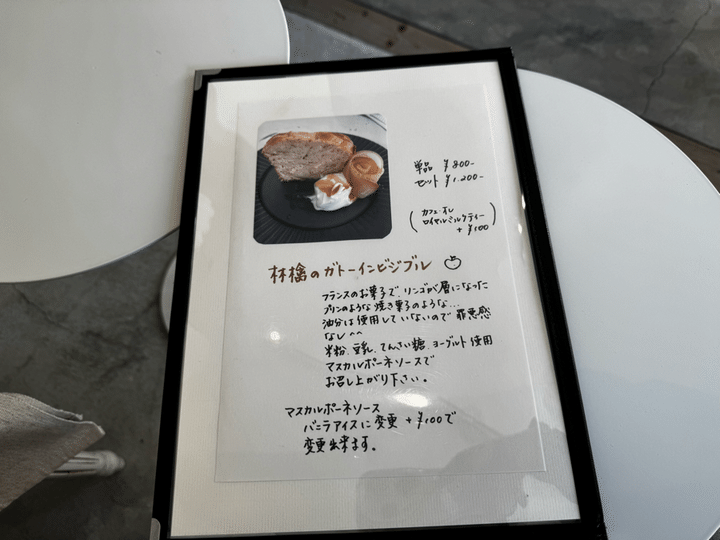 単品 ¥800-
セット ¥1,200-
(カフェ・オレ
ロイヤルミルクティー
+¥100)
林檎のガトーインビジブル
フランスのお菓子で、リンゴが層になった
プリンのような焼き菓子のような...
油分は使用していないので罪悪感
なし^^
米粉、豆乳、てんさい糖、ヨーグルト使用
マスカルポーネソースで
お召し上がり下さい。
マスカルポーネソース
バニラアイスに変更+¥100で
変更出来ます。